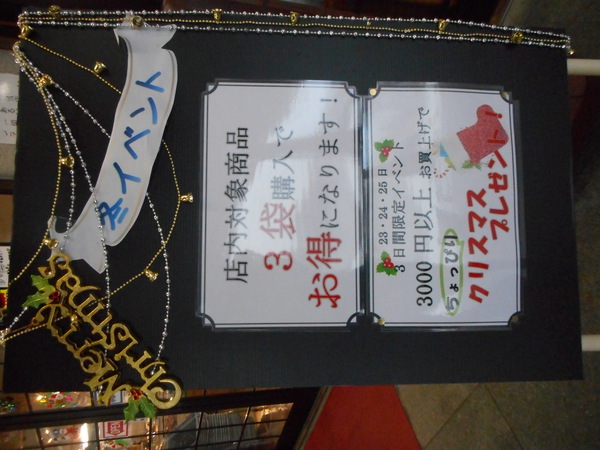 冬イベント
Merry
Christmas
店内対象商品
3袋購入で
お得になります!
23・24・25日
3日間限定イベント
3000円以上お買上げで
ちょっぴり
クリスマス
プレゼント!